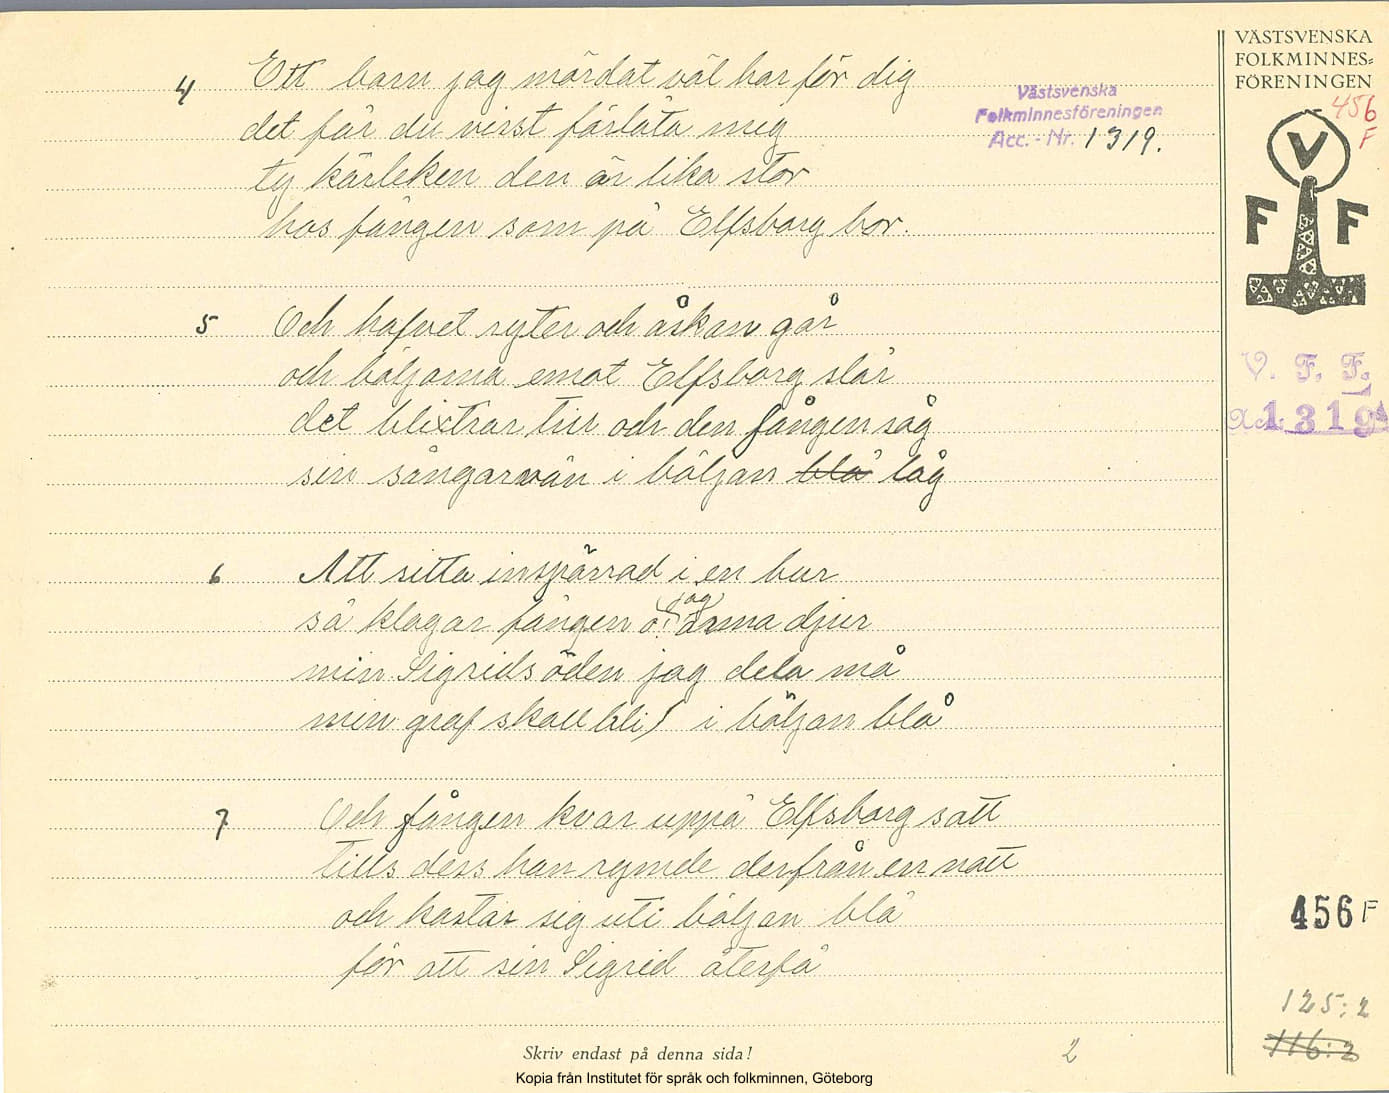 4 Ett barn jag mördat väl har för dig
det får du visst förlåta mig
ty kärleken den är lika stor
hos fången som på Elfsborg bor.
5 Och hafvet ryter och åskan går
och böljorna emot Elfsborg slår
det blixtrar till och den fången såg
sin sångarvän i böljan blå låg
6 Att sitta inspärrad i en bur
jag
så klagar fången o! arma djur
min Sigrids öden jag dela må
min graf skall bli i böljan blå
7. Och fången kvar uppå Elfsborg satt
tills dess han rymde derfrån en natt
och kastar sig uti böljan blå
för att sin Sigrid återfå
Skriv endast på denna sida!
2
Kopia från Institutet för språk och folkminnen, Göteborg
Västsvenska
Folkminnesföreningen
Acc. - Nr. 1319.
VÄSTSVENSKA
FOLKMINNES=
FÖRENINGEN
456
F
V
F F
V. F. F.
1319
456 F
125:2
116:2